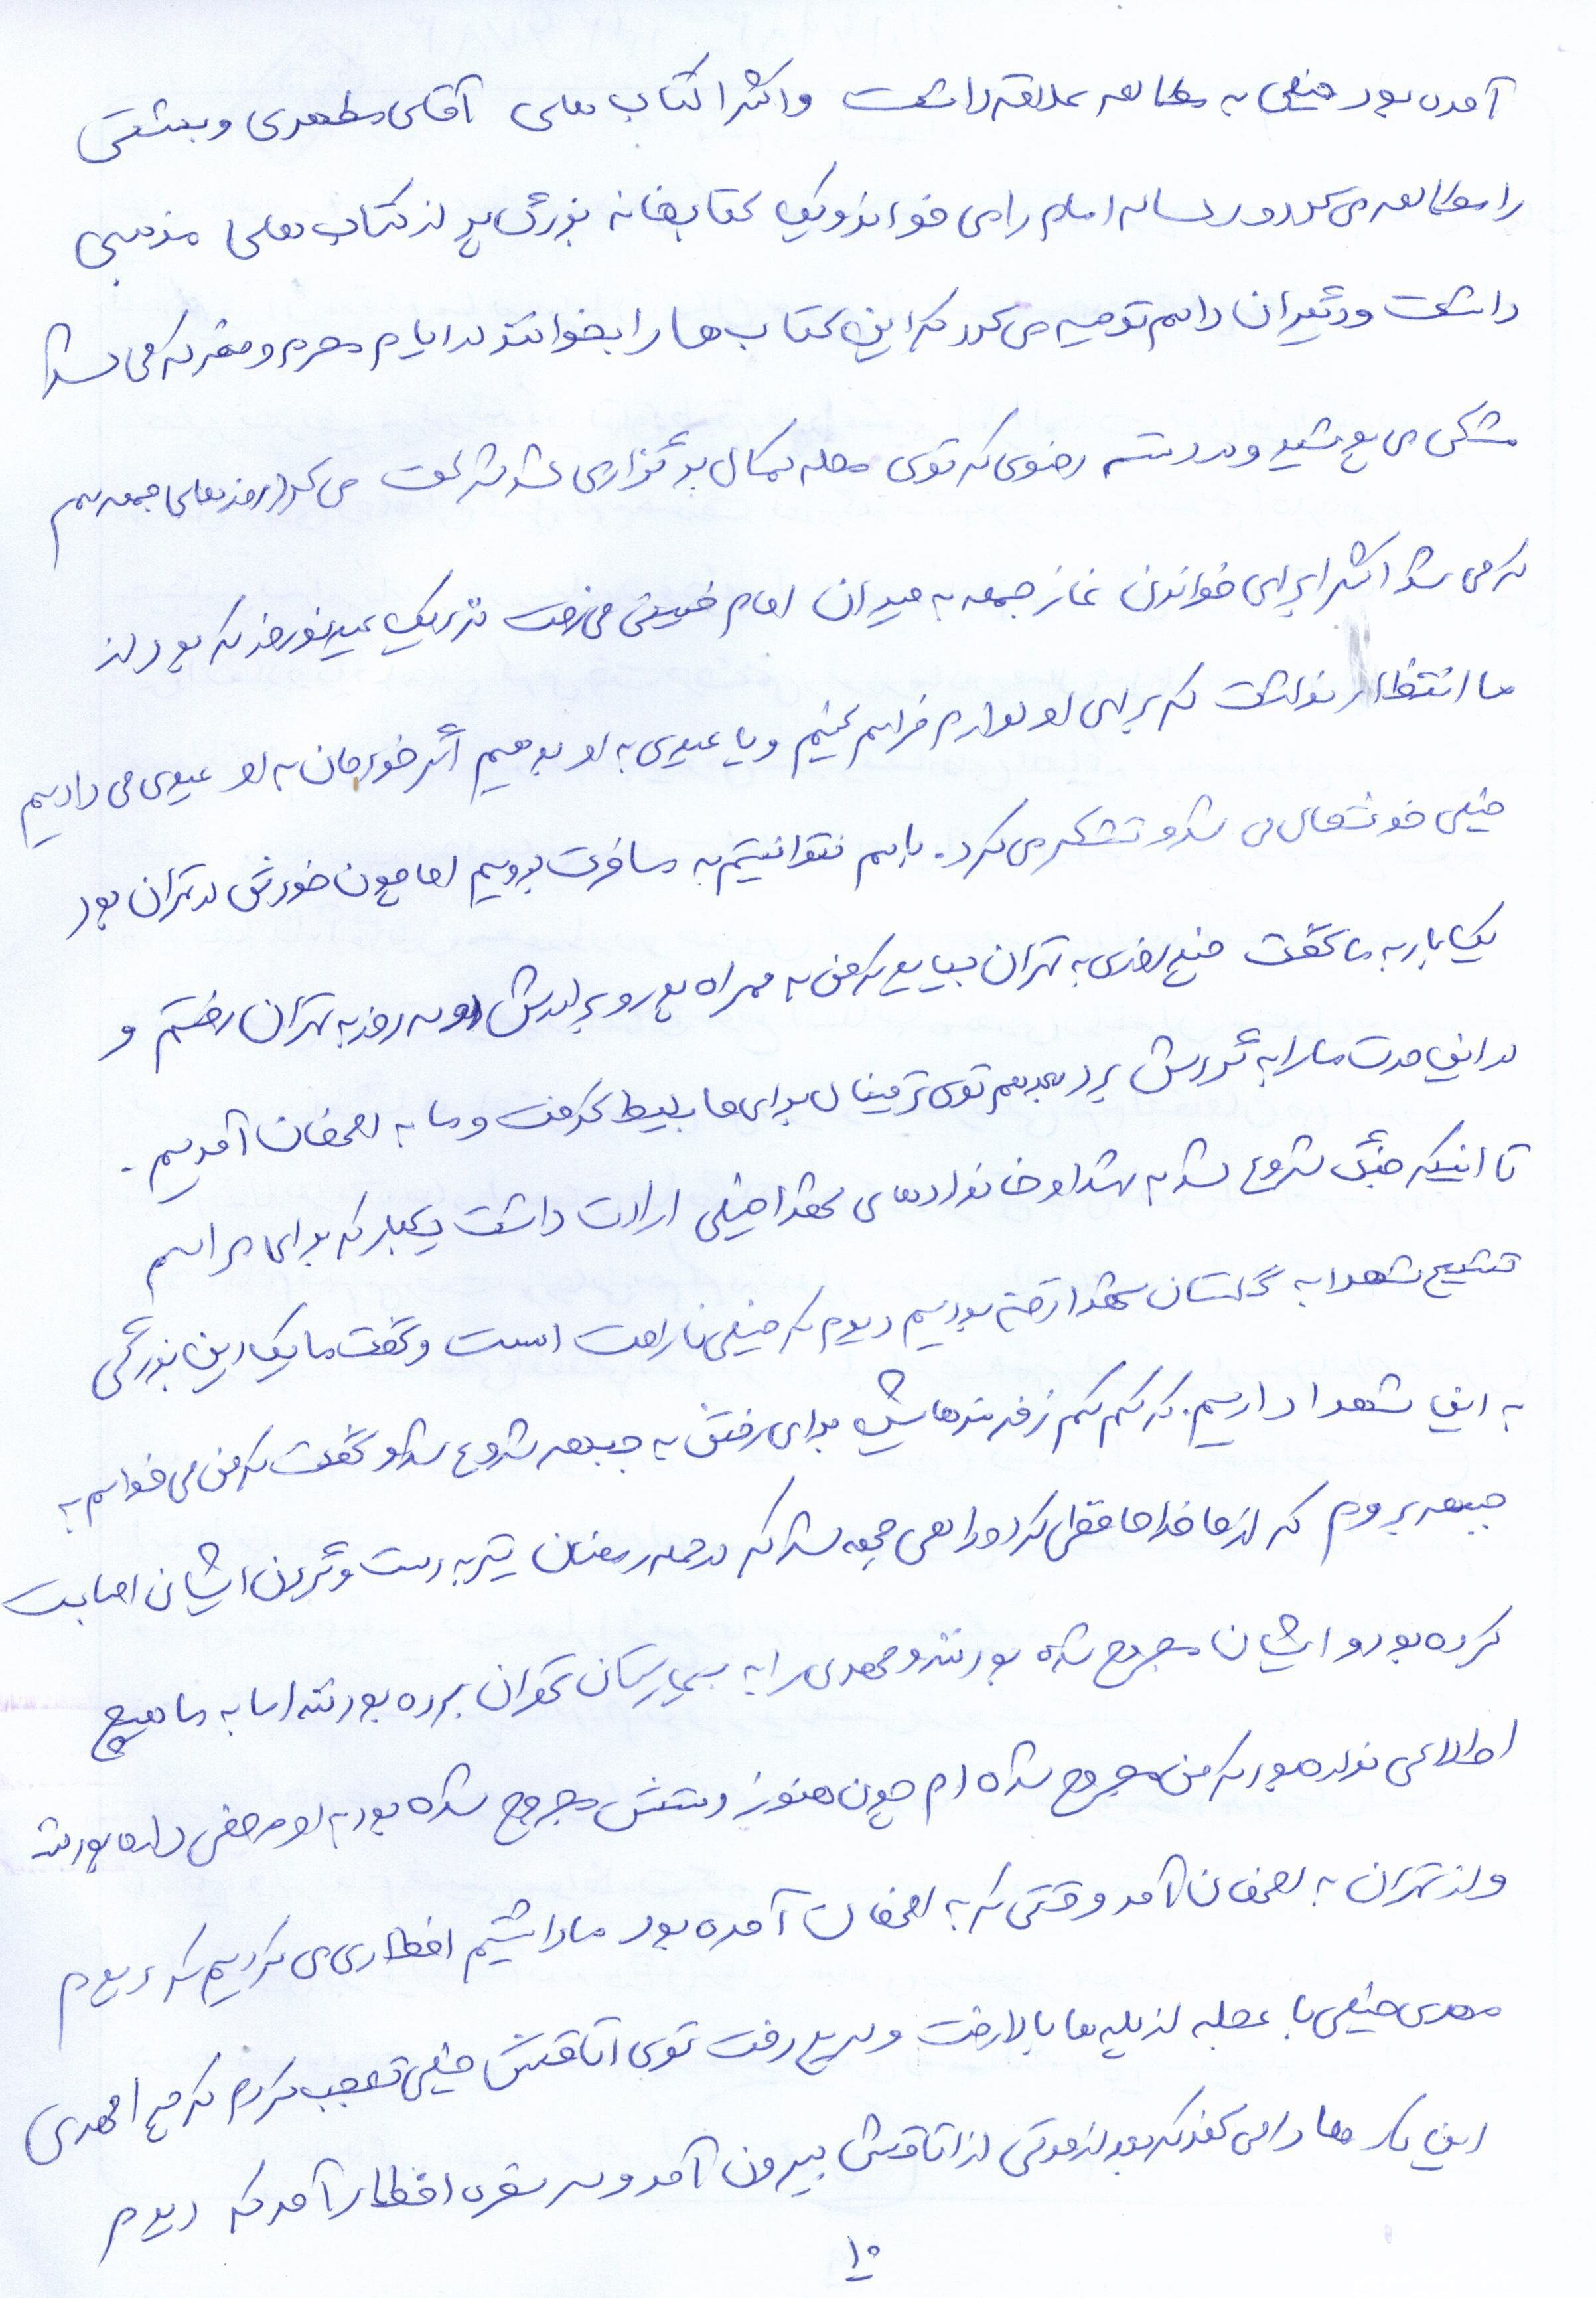 آمده بود خیلی به مطالعه علاقه داشت واکثرا کتاب های آقای مطهری و بهشتی
را مطالعه می کرد و رساله امام را می خواند و یک کتابخانه بزرگ پر از کتاب های مذهبی
داشت و دیگران را هم توصیه می کرد که این کتاب ها را بخوانند در ایام محرم و صفر که می شد
مشکی می پوشید و در دسته رضوی که توی محله کمال برگزاری شد شرکت می کرد روزهای جمعه هم
که می شد اکثرا برای خواندن نماز جمعه به میدان امام خمینی می رفت نزدیک عید نوروز که بود از
ما انتظار نداشت که برای او لوازم فراهم کنیم و یا عیدی به او بدهیم اگر خودمان به او عیدی می دادیم
خیلی خوشحال می شد و تشکر می کرد. باهم نتوانستیم به مسافرت برویم اما چون خودش در تهران بود
یک بار به ما گفت چند روزی به تهران بیایید که من به همراه پدر و برادرش دو سه روز به تهران رفتیم و
در این مدت ما را به گردش برد بعد هم توی ترمینال برای ما بلیط گرفت و ما به اصفهان آمدیم.
تا اینکه جنگ شروع شد به شهدا و خانواده های شهدا خیلی ارادت داشت یکبار که برای مراسم
تشییع شهدا به گلستان شهدا رفته بودیم دیدم که خیلی ناراحت است و گفت ما یک دین بزرگی
به این شهدا داریم. که کم کم زمزمه هایش برای رفتن به جبهه شروع شد و گفت که من می خواهم به
جبهه بروم که از ما خداحافظی کرد و راهی جبهه شد که در حمله رمضان تیر به دست و گردن ایشان اصابت
کرده بود و ایشان مجروح شده بودند و مهدی را به بیمارستان تهران برده بودند اما به ما هیچ
اطلاعی نداده بود که من مجروح شده ام چون هنوز دستش مجروح شده بود به او مرخصی داده بودند
و از تهران به اصفهان آمد وقتی که به اصفهان آمده بود ما داشتیم افطاری می کردیم که دیدم
مهدی خیلی با عجله از پله ها بالا رفت و سریع رفت توی اتاقش خیلی تعجب کردم که چرا مهدی
این کار ها را می کند که بعد از مدتی از اتاقش بیرون آمد و سر سفره افطار آمد که دیدم
۱۰